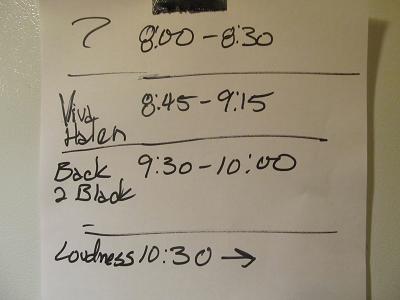 ? 8:00 - 8:30
Viva 8:45 - 9:15
Halen
Back 9:30 - 10:00
2 Black
Loudness 10:30 →